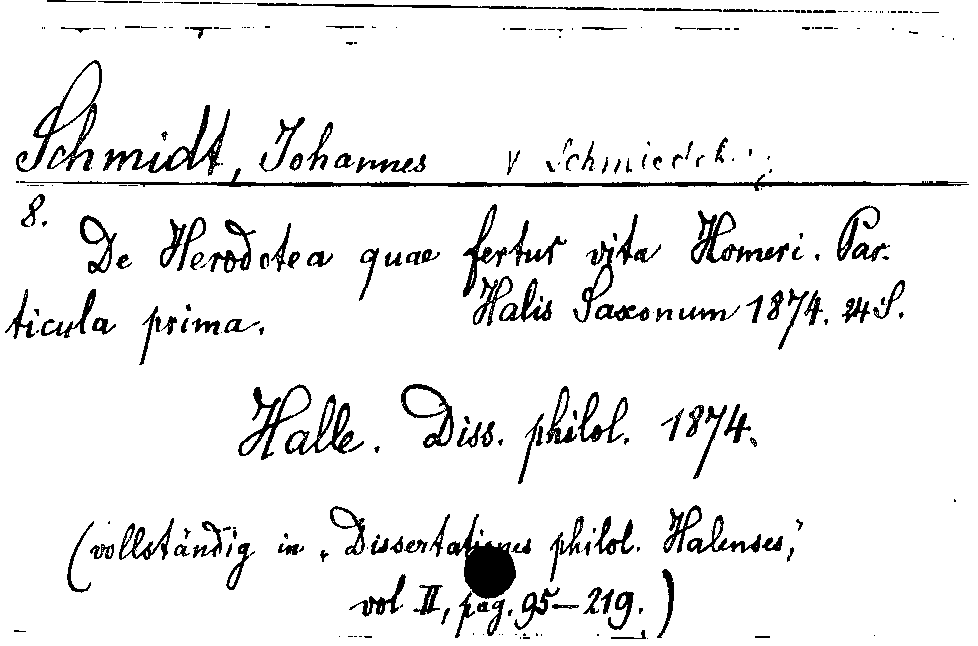 Schmidt, Johannes v Schmiedeb
8.
De Herodotea quae fertur vita Homeri. Par-
ticula prima. Halis Saxonum 1874. 24 S.
Halle. Diss. philol. 1874.
(vollständig in „Dissertationes philol. Halenses,"
vol II, pag. 95–219.)